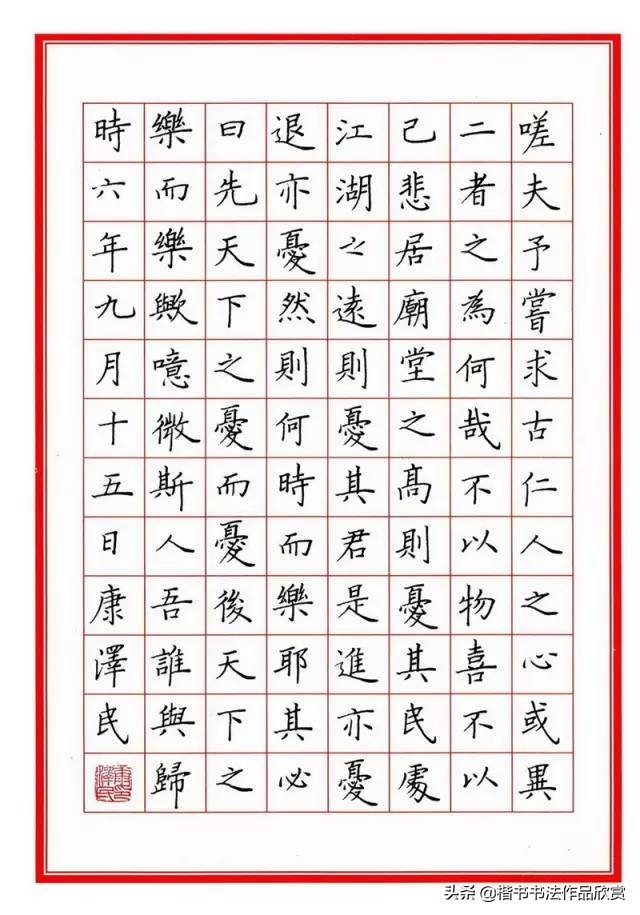 嗟夫予嘗求古仁人之心或異
二者之為何哉不以物喜不以
己悲居廟堂之高則憂其民處
江湖之遠則憂其君是進亦憂
退亦憂然則何時而樂耶其必
曰先天下之憂而憂後天下之
樂而樂歟噫微斯人吾誰與歸
時六年九月十五日康澤民
康澤民印
头条 @楷书书法作品欣赏